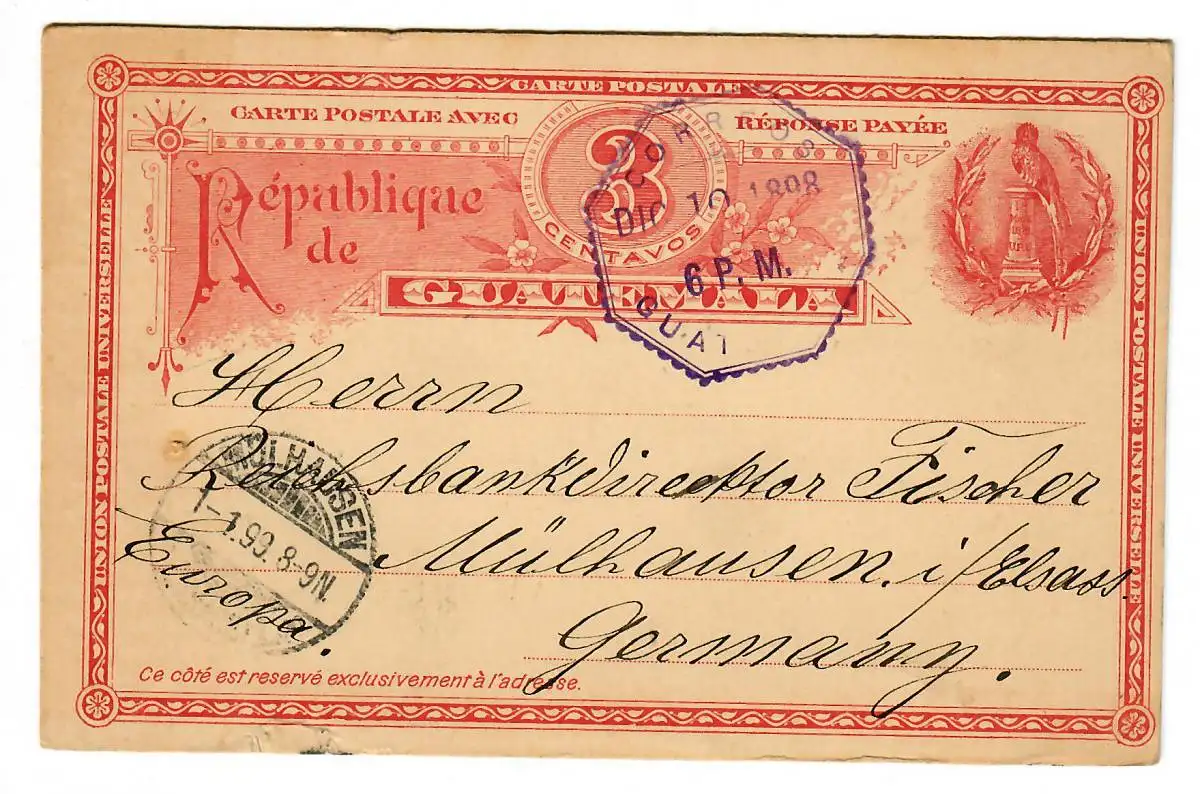 CARTE POSTALE
CARTE POSTALE AVEC RÉPONSE PAYÉE
3
République
de
CENTAVOS
GUATEMALA
CORREOS
DIC 10 1898
6 P. M.
GUAT
UNION POSTALE UNIVERSELLE
UNION POSTALE UNIVERSELLE
Herrn
Reichsbankdirecktor Fischer
Mülhausen. i/Elsass.
Germany.
Europa.
MÜLHAUSEN
1-1.99. 8-9N
Ce côté est reservé exclusivement à l'adresse.